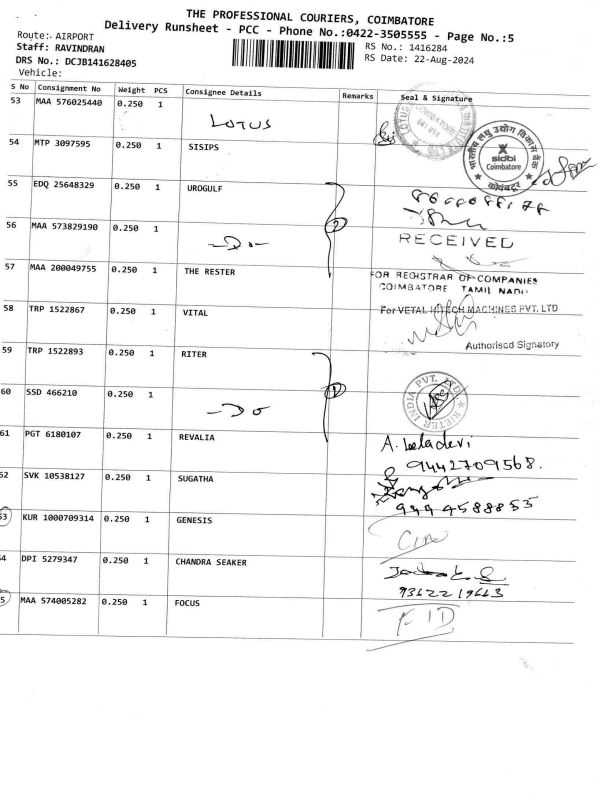 THE PROFESSIONAL COURIERS, COIMBATORE
Delivery Runsheet - PCC - Phone No.:0422-3505555 - Page No.:5
Route:- AIRPORT
Staff: RAVINDRAN
RS No.: 1416284
DRS No.: DCJB141628405
RS Date: 22-Aug-2024
Vehicle:
S No Consignment No Weight PCS Consignee Details Remarks Seal & Signature
53 MAA 576025440 0.250 1 LOTUS
54 MTP 3097595 0.250 1 SISIPS
भारतीय लघु उद्योग विकास बैंक
sidbi
Coimbatore
कोयंबटूर
55 EDQ 25648329 0.250 1 UROGULF
56 MAA 573829190 0.250 1 -Do-
RECEIVED
57 MAA 200049755 0.250 1 THE RESTER
FOR REGISTRAR OF COMPANIES
COIMBATORE TAMIL NADU
58 TRP 1522867 0.250 1 VITAL
For VETAL HITECH MACHINES PVT. LTD
Authorised Signatory
59 TRP 1522893 0.250 1 RITER
60 SSD 466210 0.250 1 -Do
RIETER INDIA PVT. LTD.
61 PGT 6180107 0.250 1 REVALIA
A. Leeladevi
9442709568.
62 SVK 10538127 0.250 1 SUGATHA
9994588855
63 KUR 1000709314 0.250 1 GENESIS
64 DPI 5279347 0.250 1 CHANDRA SEAKER
9362219663
65 MAA 574005282 0.250 1 FOCUS